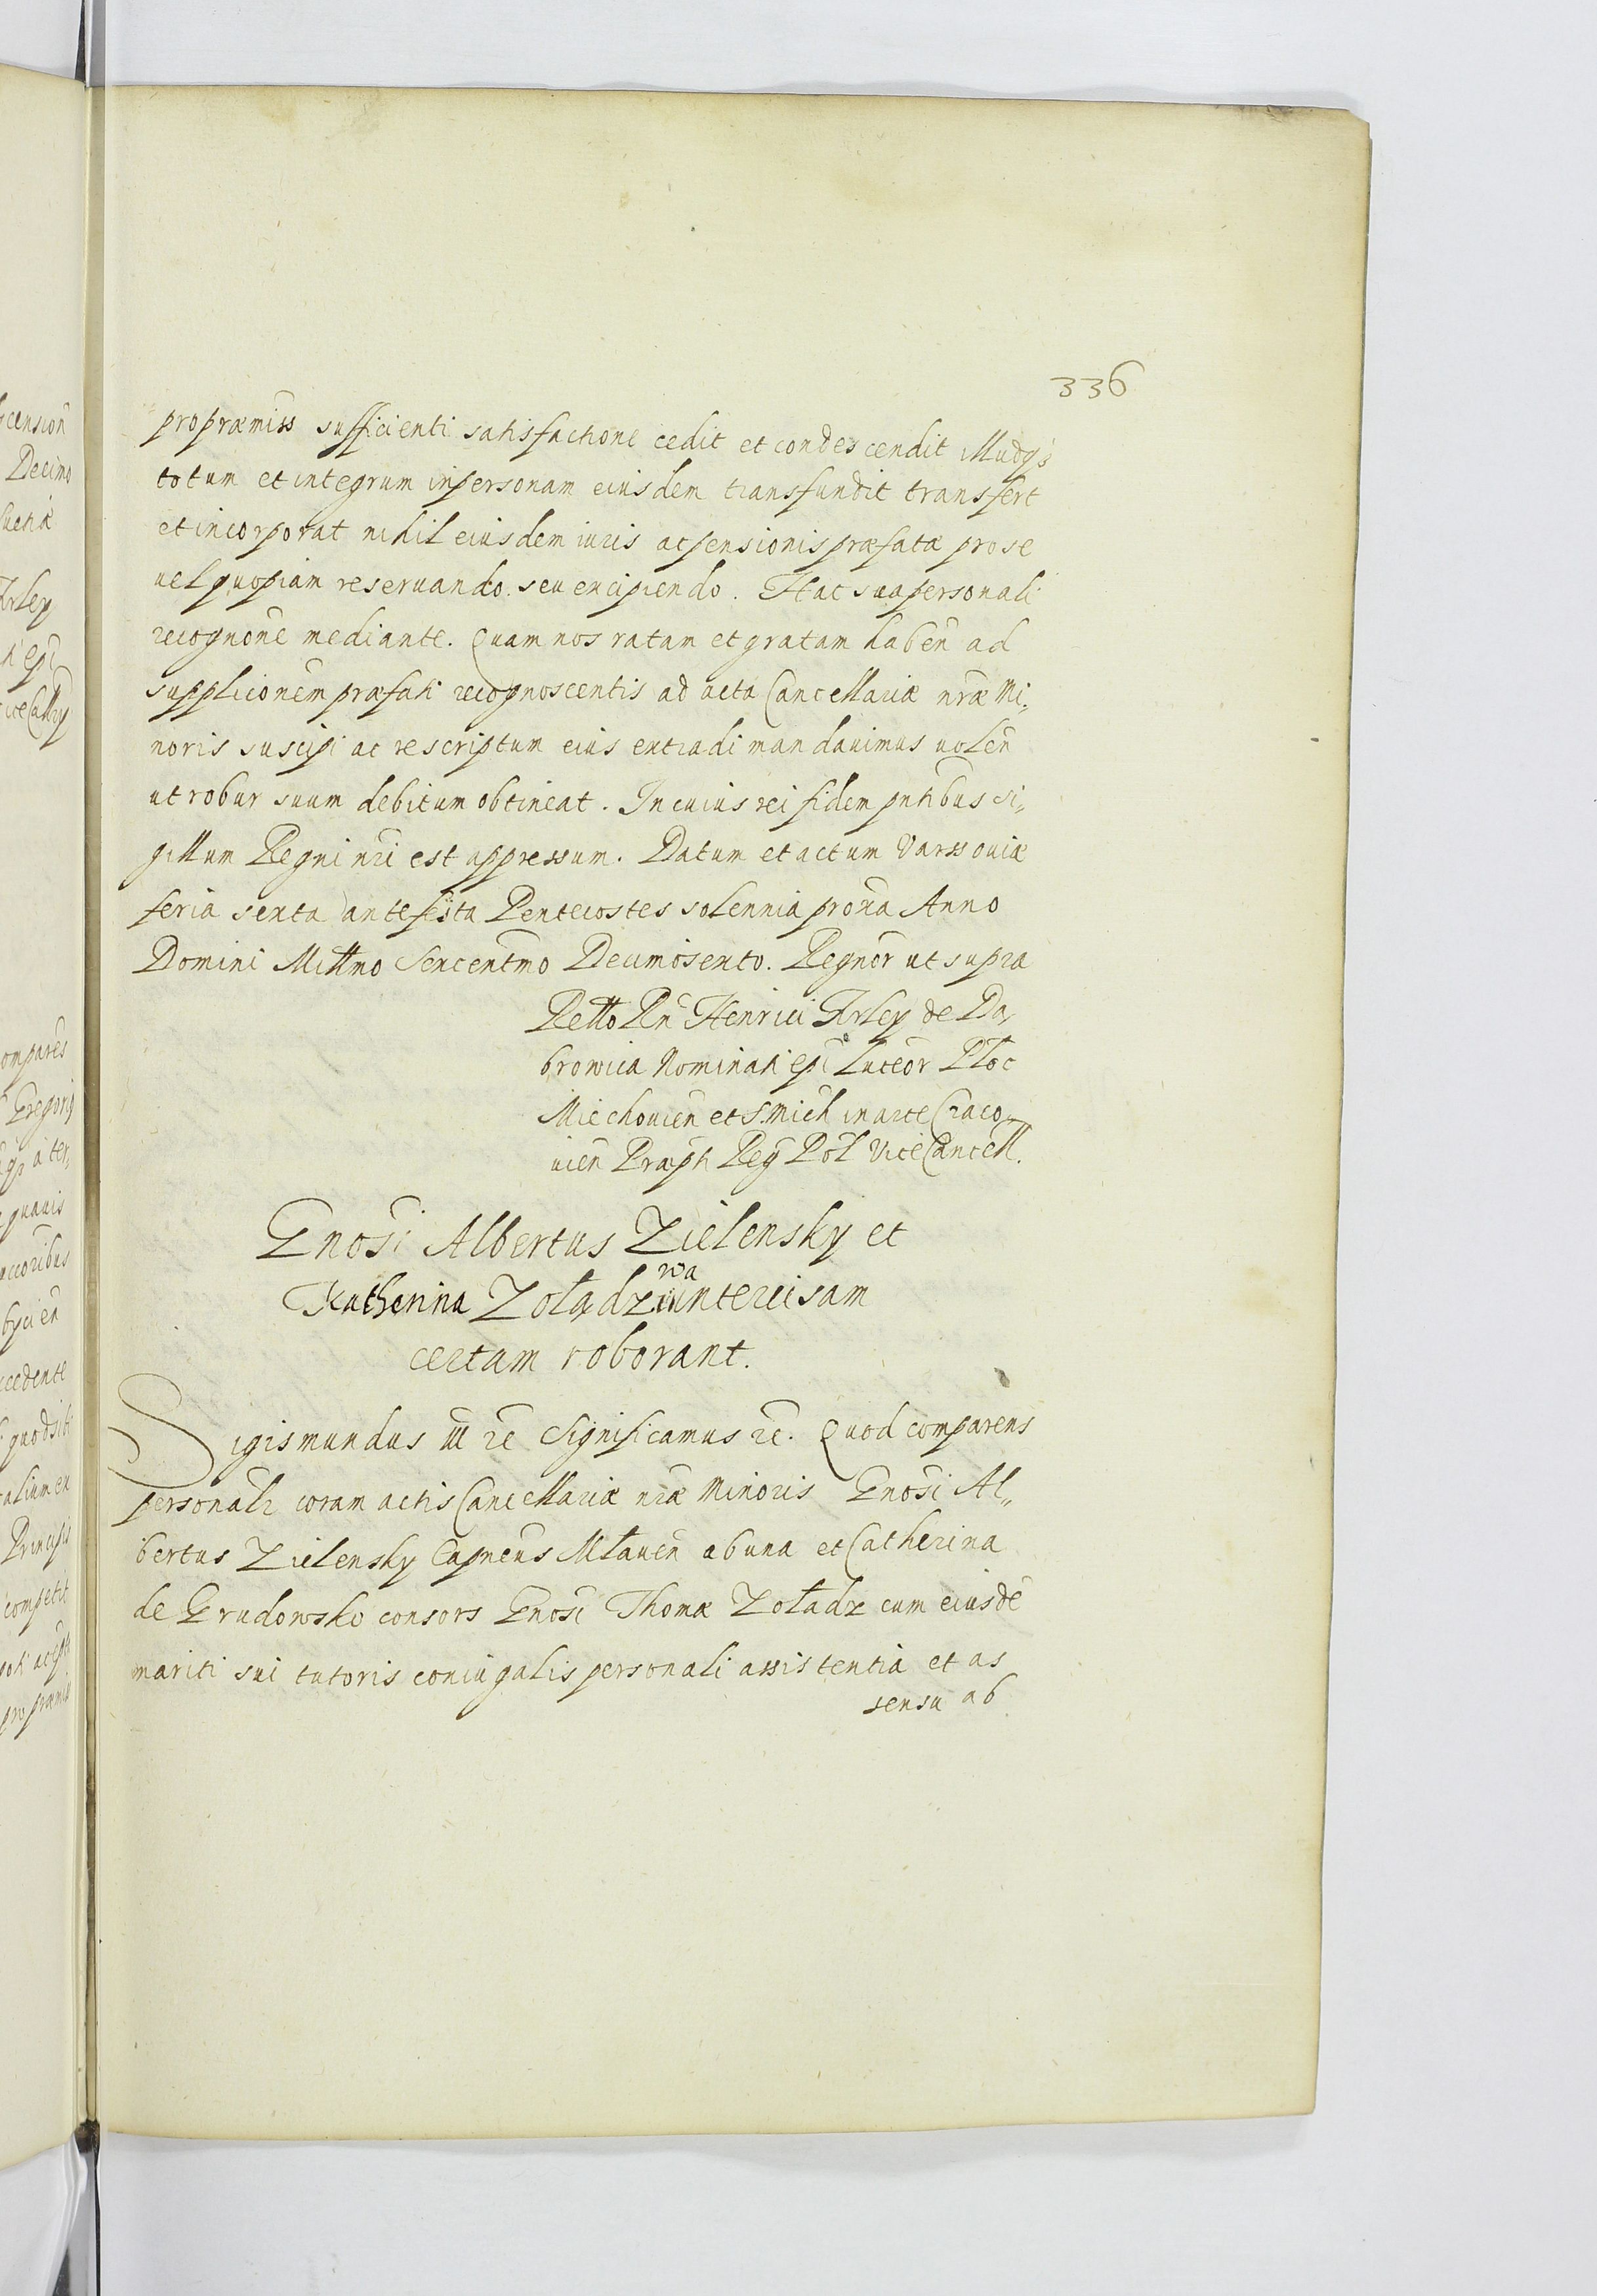 336
pro præmiss sufficienti satisfactione cedit et condescendit illudqȝ
totum et integrum in personam eiusdem transfundit transfert
et incorporat nihil eiusdem iuris ac pensionis præfatæ pro se
uel quopiam reseruando seu excipiendo. Hac sua personali
recognone mediante. Quam nos ratam et gratam haben̄ ad
supplicionem præfati recognoscentis ad acta Cancellariæ nræ Mi,
noris suscipi ac rescriptum eius extradi mandauimus uolen̄
ut robur suum debitum obtineat. In cuius rei fidem pntibus si,
gillum Regni nri est appressum. Datum et actum Varssouiæ
feria sexta ante festa Pentecostes solennia proxa Anno
Domini Millmo Sexcentmo Decimosexto. Regnor ut supra
Retto Rn Henrici Firley de Da,
browica Nominati epi Luceor Ploc
Miechouien et S. Mich in arce Craco,
uien Præpti Reg Pol ViceCancell.
Gnosi Albertus Zielensky et
Katherina Zoładzwa intercisam
certam roborant.
Sigismundus III rc Significamus rc. Quod comparens
personalr coram actis Cancellariæ nræ Minoris Gnosi Al,,
bertus Zielensky Capneus Mlauen ab una et Catherina
de Grudowsko consors Gnosi Thomæ Zoładz cum eiusdē
mariti sui tutoris coniugalis personali assistentia et as
sensu ab
cension
Decimo
Firley
epi
ompares
Gregorij
a ter,
quauis
cedente
quod sibi
alium ex
Principis
competit
pro præmiss